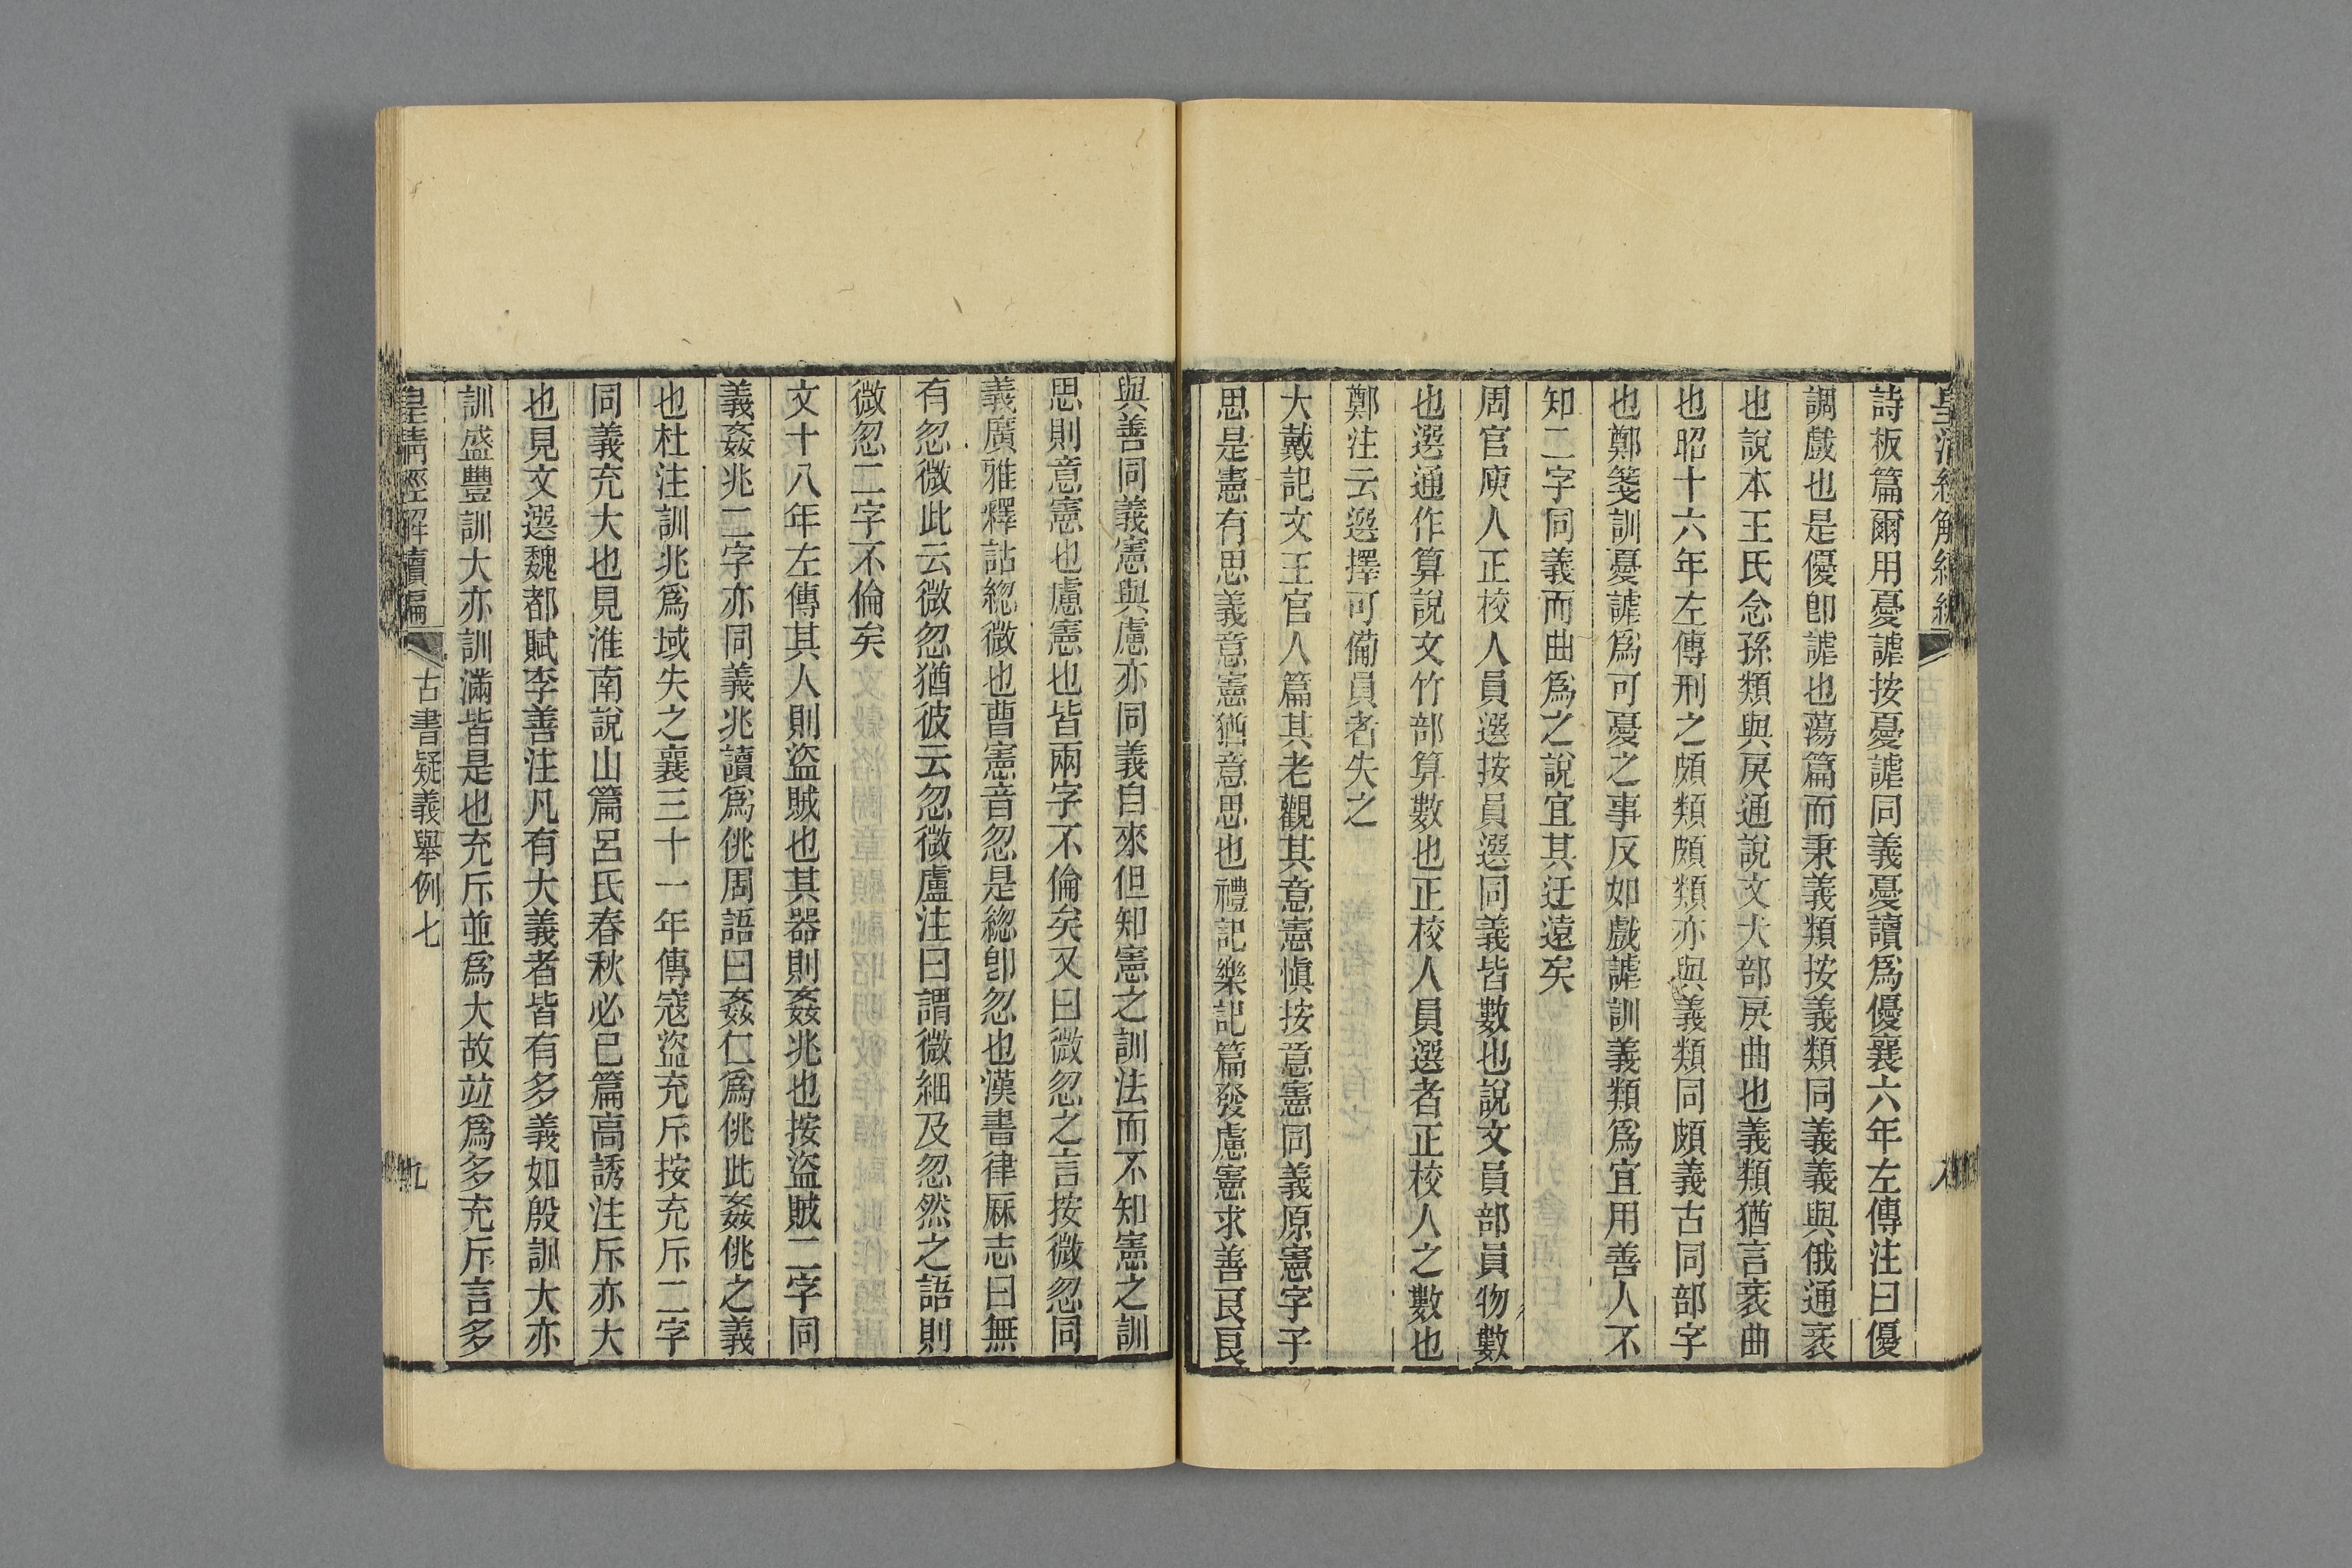 皇清經解續編
八
詩板篇爾用憂謔按憂謔同義憂讀爲優襄六年左傳注曰優
調戲也是優卽謔也蕩篇而秉義類按義類同義義與俄通衺
也說本王氏念孫類與戾通說文犬部戾曲也義類猶言衺曲
也昭十六年左傳刑之頗類頗類亦與義類同頗義古同部字
也鄭箋訓憂謔爲可憂之事反如戲謔訓義類爲宜用善人不
知二字同義而曲爲之說宜其迂遠矣
周官庾人正校人員選按員選同義皆數也說文員部員物數
也選通作算說文竹部算數也正校人員選者正校人之數也
鄭注云選擇可備員者失之
大戴記文王官人篇其老觀其意憲愼按意憲同義原憲字子
思是憲有思義意憲猶意思也禮記樂記篇發慮憲求善良良
與善同義憲與慮亦同義自來但知憲之訓法而不知憲之訓
思則意憲也慮憲也皆兩字不倫矣又曰微忽之言按微忽同
義廣雅釋詁緫微也曹憲音忽是緫卽忽也漢書律厤志曰無
有忽微此云微忽猶彼云忽微盧注曰謂微細及忽然之語則
微忽二字不倫矣
文十八年左傳其人則盜賊也其器則姦兆也按盜賊二字同
義姦兆二字亦同義兆讀爲佻周語曰姦仁爲佻此姦佻之義
也杜注訓兆爲域失之襄三十一年傳寇盜充斥按充斥二字
同義充大也見淮南說山篇呂氏春秋必已篇高誘注斥亦大
也見文選魏都賦李善注凡有大義者皆有多義如殷訓大亦
訓盛豐訓大亦訓滿皆是也充斥並爲大故竝爲多充斥言多
皇清經解續編
古書疑義舉例七
九